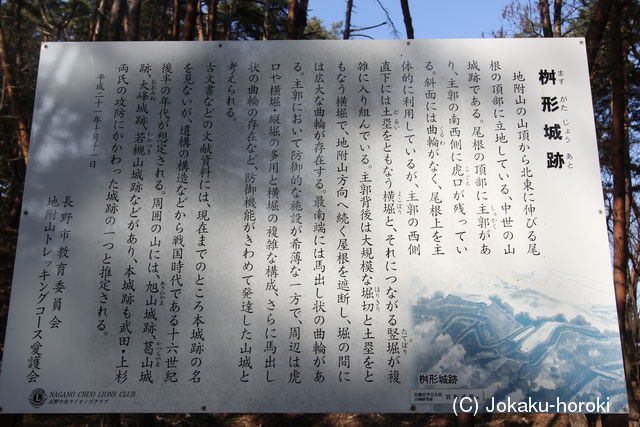 桝形城跡
ます がた じょう あと
地附山の山頂から北東に伸びる尾
根の頂部に立地している、中世の山
城跡である。尾根の頂部に主郭があ
り、主郭の南西側に虎口が残ってい
る。斜面には曲輪がなく、尾根上を主
体的に利用しているが、主郭の西側
直下には土塁をともなう横堀と、それにつながる竪堀が複
雑に入り組んでいる。主郭背後は大規模な堀切と土塁をと
もなう横堀で、地附山方向へ続く屋根を遮断し、堀の間に
は広大な曲輪が存在する。最南端には馬出し状の曲輪があ
る。主郭において防御的な施設が希薄な一方で、周辺は虎
口や横堀・縦堀の多用と横堀の複雑な構成、さらに馬出し
状の曲輪の存在など、防御機能がきわめて発達した山城と
考えられる。
古文書などの文献資料には、現在までのところ本城跡の名
を見ないが、遺構の構造などから戦国時代である十六世紀
後半の年代が想定される。周囲の山には、旭山城跡、葛山城
跡、大峰城跡、若槻山城跡などがあり、本城跡も武田・上杉
両氏の攻防にかかわった城跡の一つと推定される。
平成二十一年十月十一日
長野市教育委員会
地附山トレッキングコース愛護会
NAGANO CHUO LIONS CLUB
長野中央ライオンズクラブ
桝形城跡
(C) Jokaku-horoki